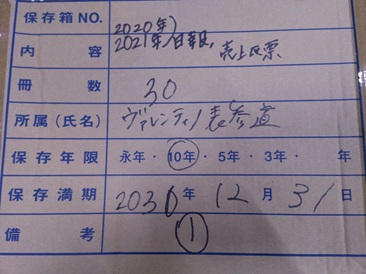 保存箱NO.
2020年)
内 容 2021年/日報, 売上伝票
冊 数 30
所属(氏名) ヴァレンティノ表参道
保存年限 永年・10年・5年・3年・ 年
保存満期 2031年 12月 31日
備 考 ①